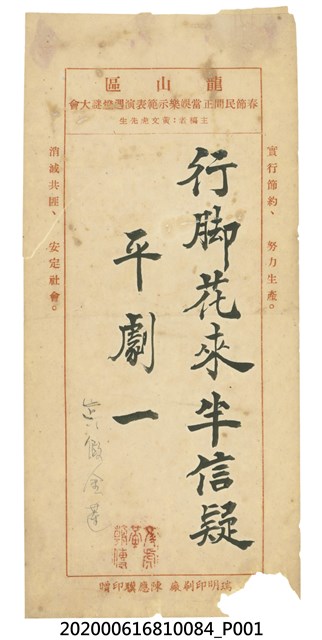 龍山區
春節民間正當娛樂示範表演暨燈謎大會
主編者：黃文虎先生
實行節約、努力生產。
行脚花來半信疑
平劇一
消滅共匪、安定社會。
瑞明印刷廠 陳應聯印贈
202000616810084_P001